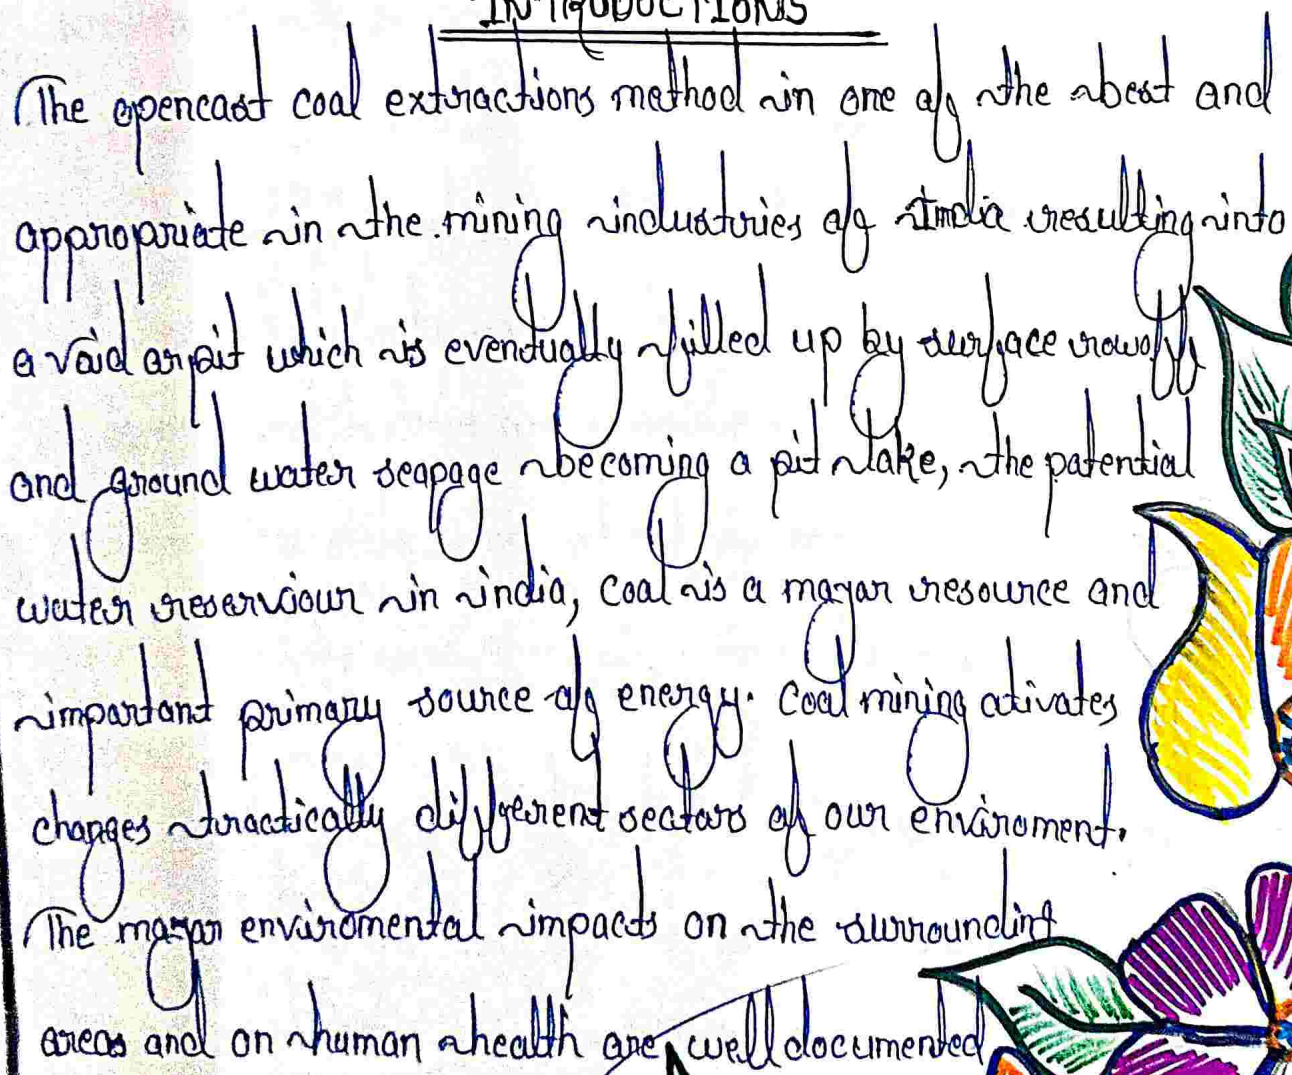 INTRODUCTIONS
The opencast coal extractions method in one of the best and
appropriate in the mining industries of India resulting into
a void or pit which is eventually filled up by surface rowoff
and ground water seapage becoming a pit lake, the potential
water reserviour in india, coal is a mayor resource and
important primary source of energy. Coal mining ativates
changes tractically different sectors of our enviroment.
The mayor enviromental impacts on the surrounding
areas and on human health are well documented